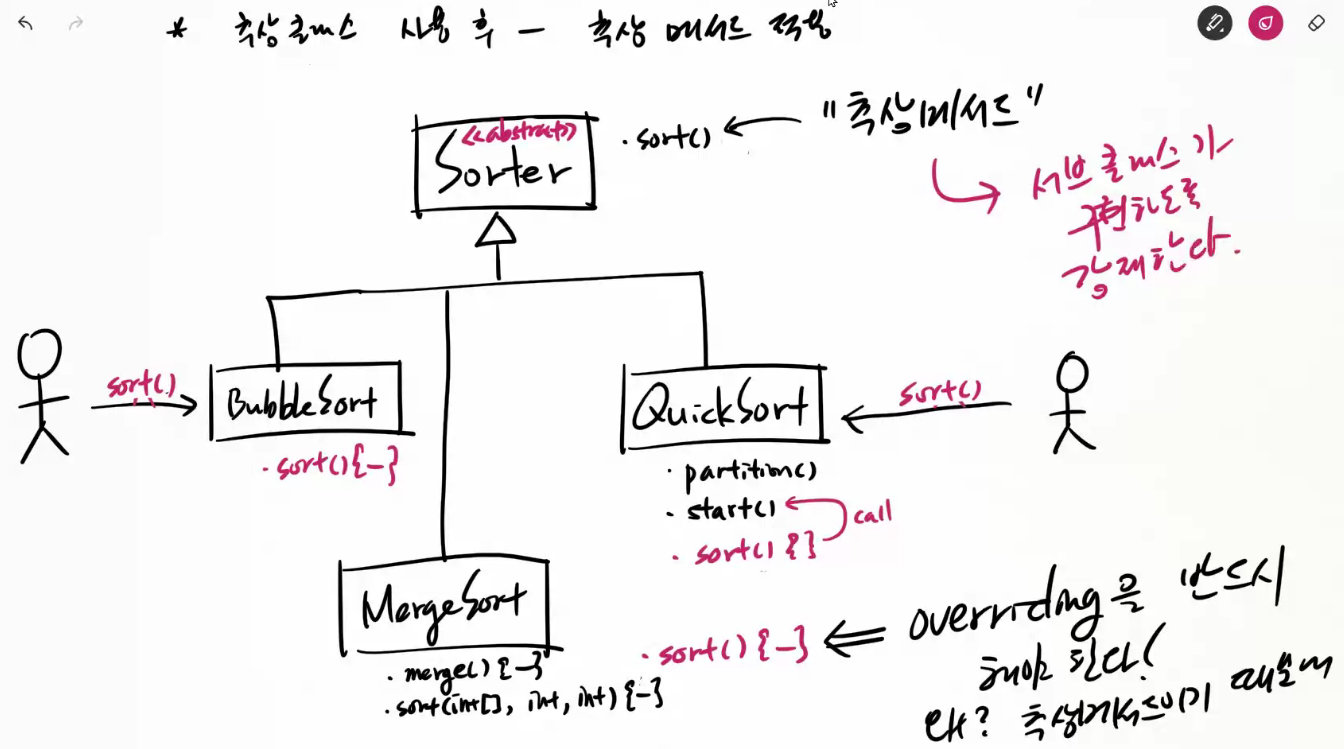 * 추상 클래스 사용 후 - 추상 메서드 적용
<<abstract>>
Sorter
· sort()
"추상메서드"
서브 클래스가
구현하도록
강제한다.
sort()
BubbleSort
· sort(){-}
QuickSort
sort()
· partition()
· start()
call
· sort() {}
MergeSort
· merge() {-}
· sort(int[], int, int) {-}
· sort() {-}
overriding을 반드시
해야 한다!
왜? 추상메서드이기 때문에